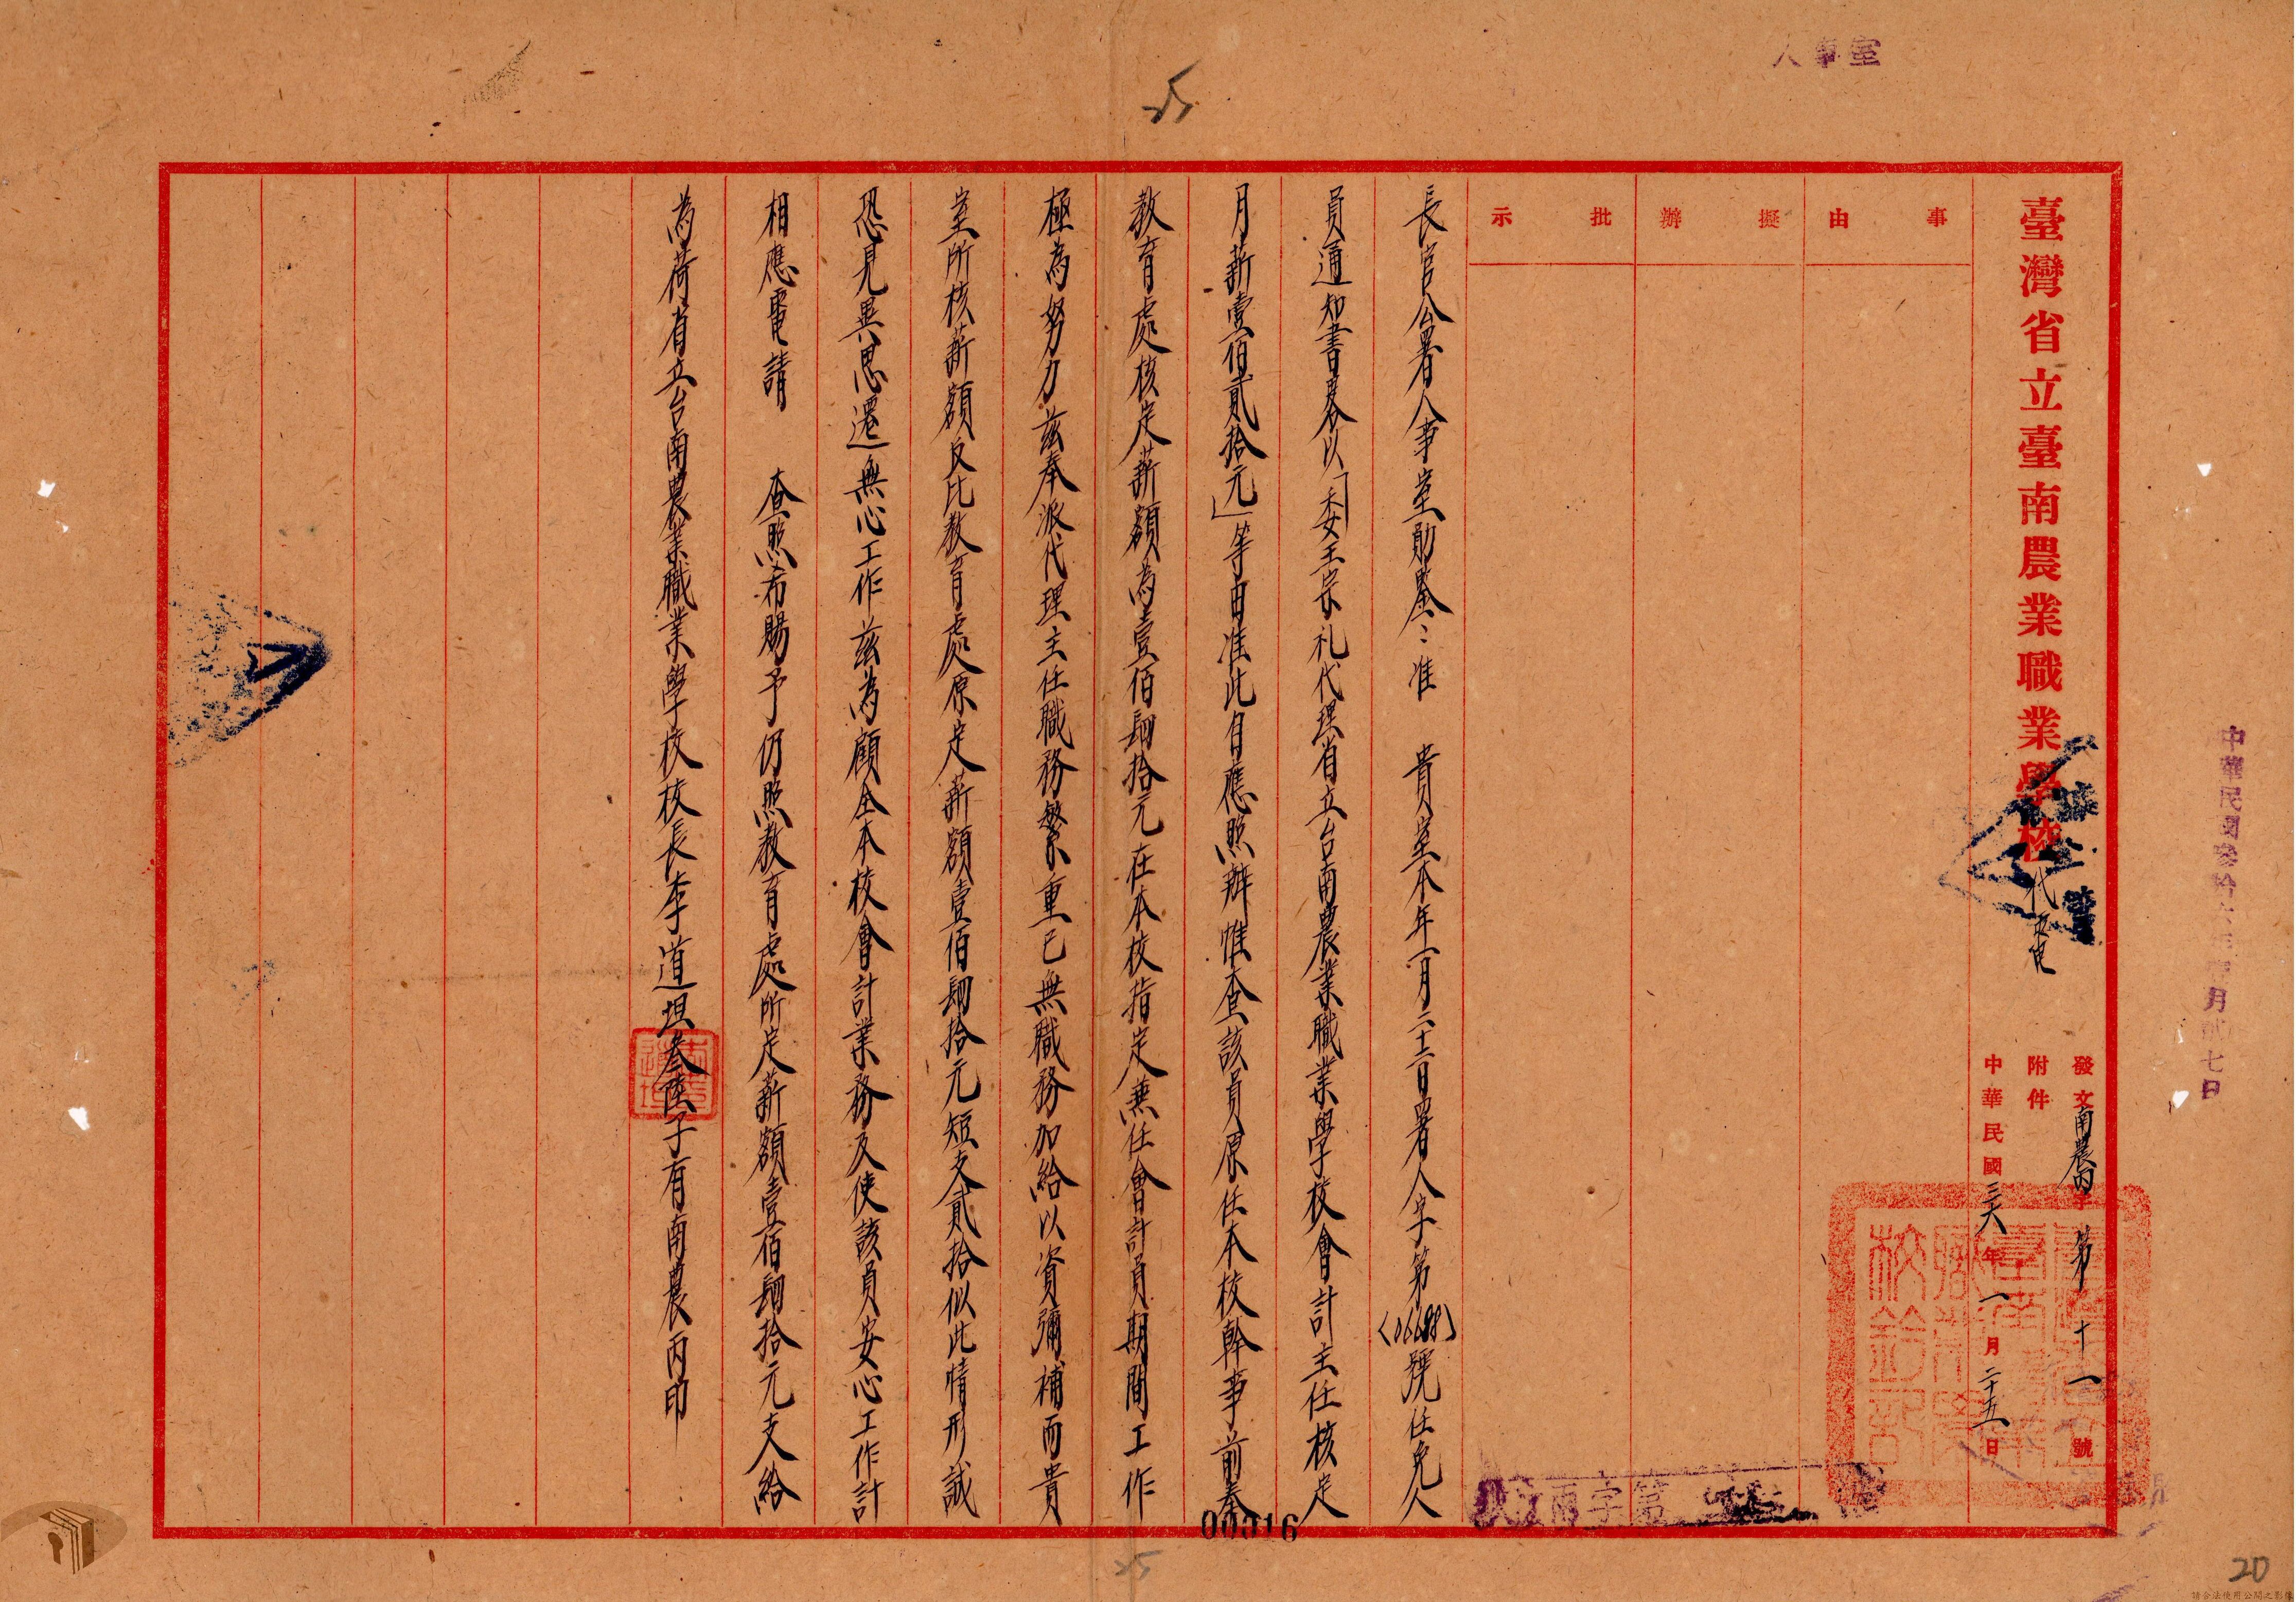 人事室
25
臺灣省立臺南農業職業學校代電
發文南農丙字第十一號
附件
中華民國三六年一月二十五日
事由
擬辦
批示
長官公署人事室勛鑒:准 貴室本年一月二十二日署人字第(06688)號任免人
員通知書畧以「委王宗礼代理省立台南農業職業學校會計主任核定
月薪壹佰貳拾元」等由准此自應照辦惟查該員原任本校幹事前奉
教育處核定薪額為壹佰肆拾元在本校指定兼任會計員期間工作
極為努力茲奉派代理主任職務繁重已無職務加給以資彌補而貴
室所核薪額反比教育處原定薪額壹佰肆拾元短支貳拾似此情形誠
恐見異思遷無心工作茲為顧全本校會計業務及使該員安心工作計
相應電請 查照希賜予仍照教育處所定薪額壹佰肆拾元支給
為荷省立台南農業職業學校校長李道坦叁陸子有南農丙印
00016
25
20
請合法使用公開之影像